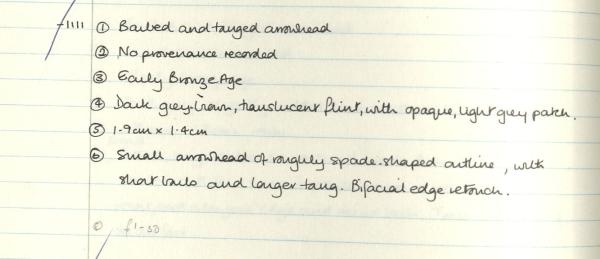 -1111 ① Barbed and tanged arrowhead
② No provenance recorded
③ Early Bronze Age
④ Dark grey-brown, translucent flint, with opaque, light grey patch.
⑤ 1.9cm x 1.4cm
⑥ Small arrowhead of roughly spade-shaped outline, with
short barbs and longer tang. Bifacial edge retouch.
f1-50